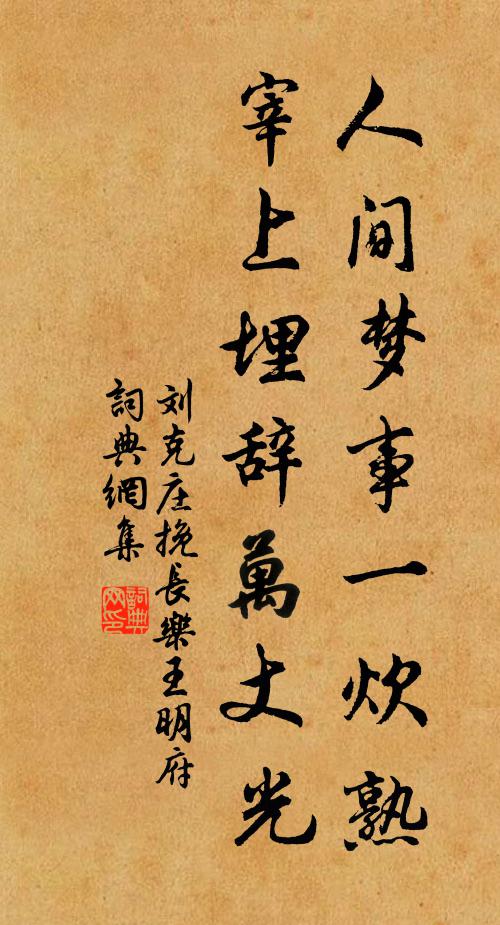 人间梦事一炊熟
宰上埋辞萬丈光
刘克庄挽长樂王明府
詞典網集
詞典网印